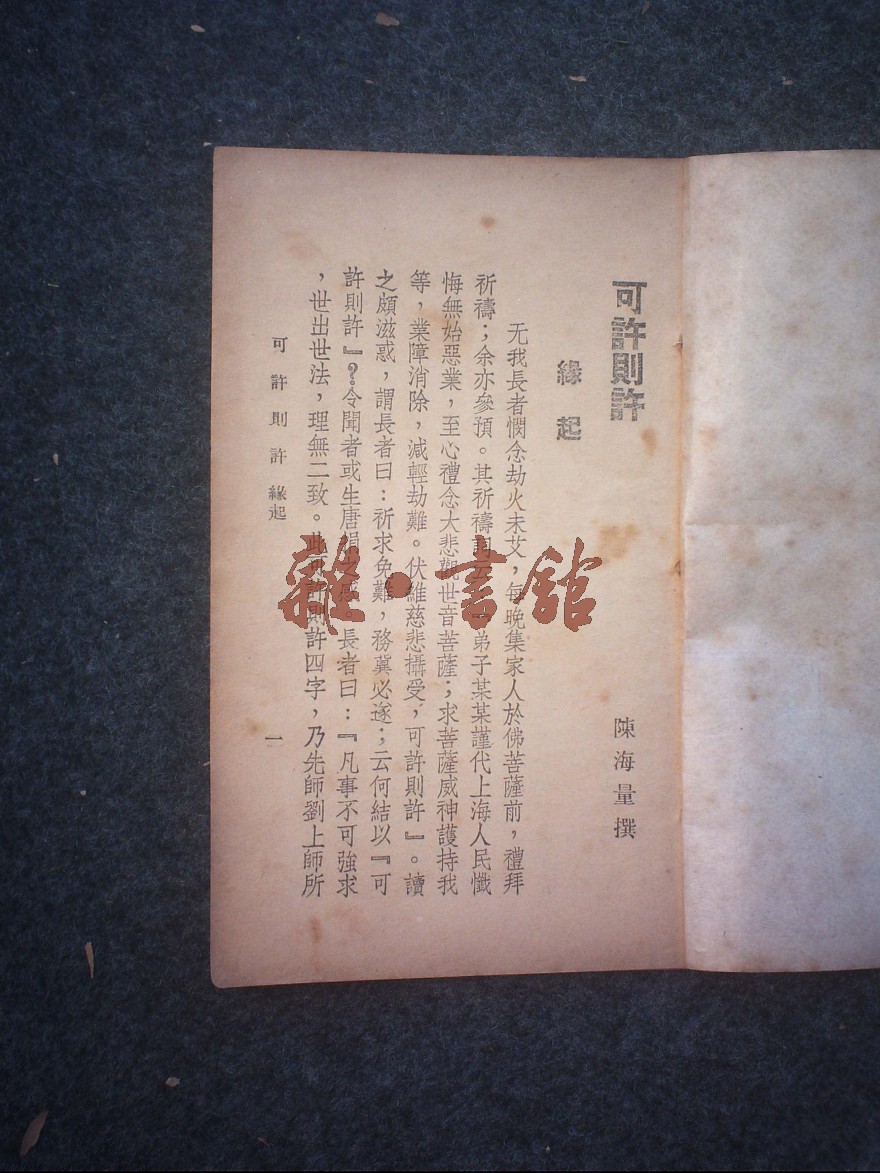 可許則許
陳海量撰
緣起
无我長者憫念劫火未艾，每晚集家人於佛菩薩前，禮拜
祈禱；余亦參預。其祈禱詞云：弟子某某謹代上海人民懺
悔無始惡業，至心禮念大悲觀世音菩薩；求菩薩威神護持我
等，業障消除，減輕劫難。伏維慈悲攝受，可許則許』。讀
之頗滋惑，謂長者曰：祈求免難，務冀必遂；云何結以『可
許則許』？令聞者或生唐捐之感。長者曰：『凡事不可強求
，世出世法，理無二致。此可許則許四字，乃先師劉上師所
可許則許 緣起
一
雜·書館